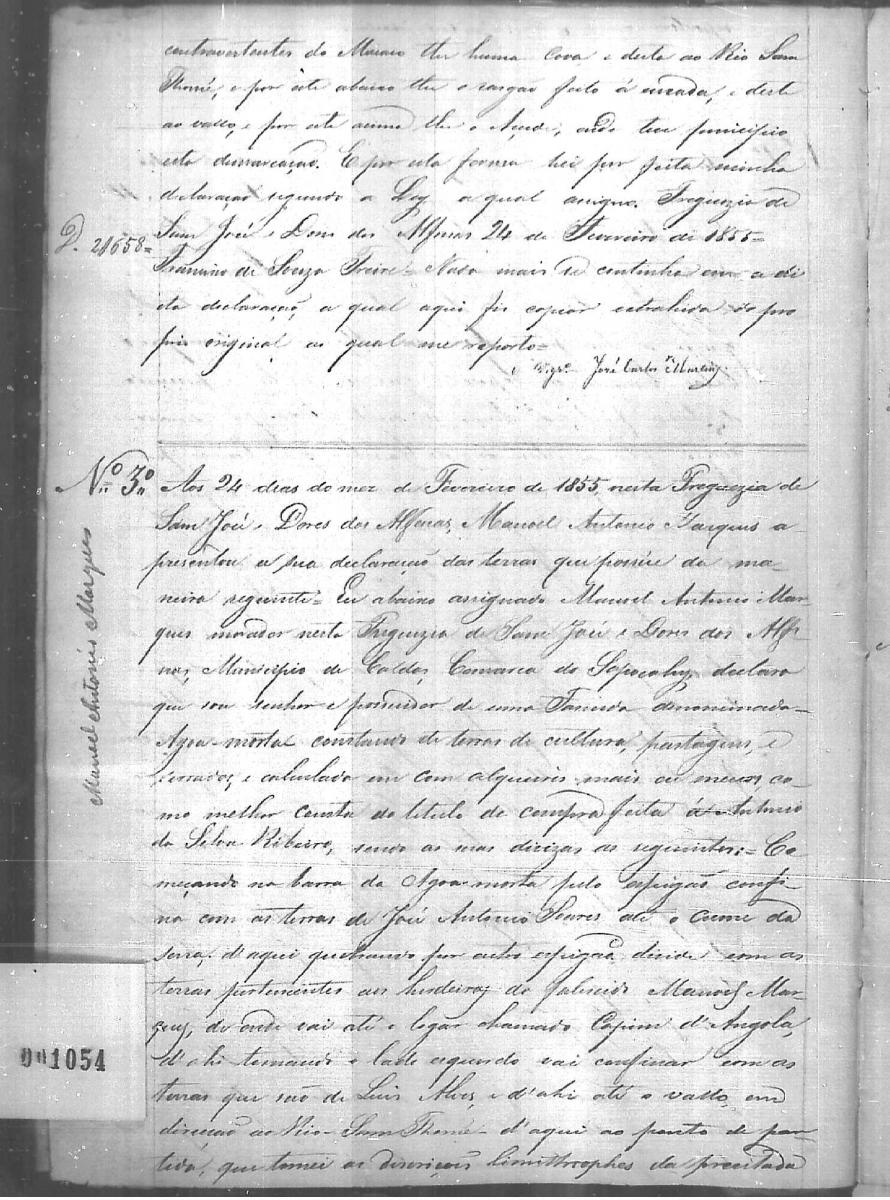 contravertentes do Macaco the huma cova e desta ao Rio Sam
Thomé, e por este abaixo the o rasgão feito á enxada, e deste
ao vallo, e por este acima the o Açude, onde teve principio
esta demarcação. E por esta forma hei por feita minha
declaração segundo a Ley a qual assigno. Freguezia de
Sam José e Dores dos Alfenas 24 de Fevereiro de 1855=
D. 21658=
de Souza Freire= Nada mais se continha em a di
ta declaração, a qual aqui fiz copiar extrahida do pro
prio original ao qual me reporto=
o Vigro José Carlos Martins
Nº 3º Aos 24 dias do mez de Fevereiro de 1855, nesta Freguezia de
Manoel Antonio Marques
Sam José e Dores dos Alfenas, Manoel Antonio Marques a=
presentou a sua declaração das terras que possúe da ma=
neira seguinte= Eu abaixo assignado Manoel Antonio Mar=
ques morador nesta Freguezia de Sam José e Dores dos Alfe=
nas, Municipio de Caldas, Comarca do Sapocahy, declaro
que sou senhor e possuidor de uma Fazenda denominada=
Agoa-morta constando de terras de cultura, pastagens, e
serrados, e calculado em cem alqueires mais ou menos, co=
mo melhor consta do titulo de compra feita á Antonio
da Silva Ribeiro, sendo as suas divizas as seguintes:= Co
meçando na barra da Agoa-morta pelo espigão confi=
na com as terras de José Antonio Soares até o cume da
serra, d'aqui quebrando por outro espigão, divide com as
terras pertencentes aos herdeiros do falecido Manoel Mar=
ques, de onde vai até o logar chamado Capim d'Angola,
d'ahi tomando o lado esquerdo vai confinar com as
terras que são de Luis Alves, e d'ahi até o vallo, em
direcção ao Rio-Sam Thomé- d'aqui ao ponto de par=
tida, que tomei as limithrophes da precitada
001054